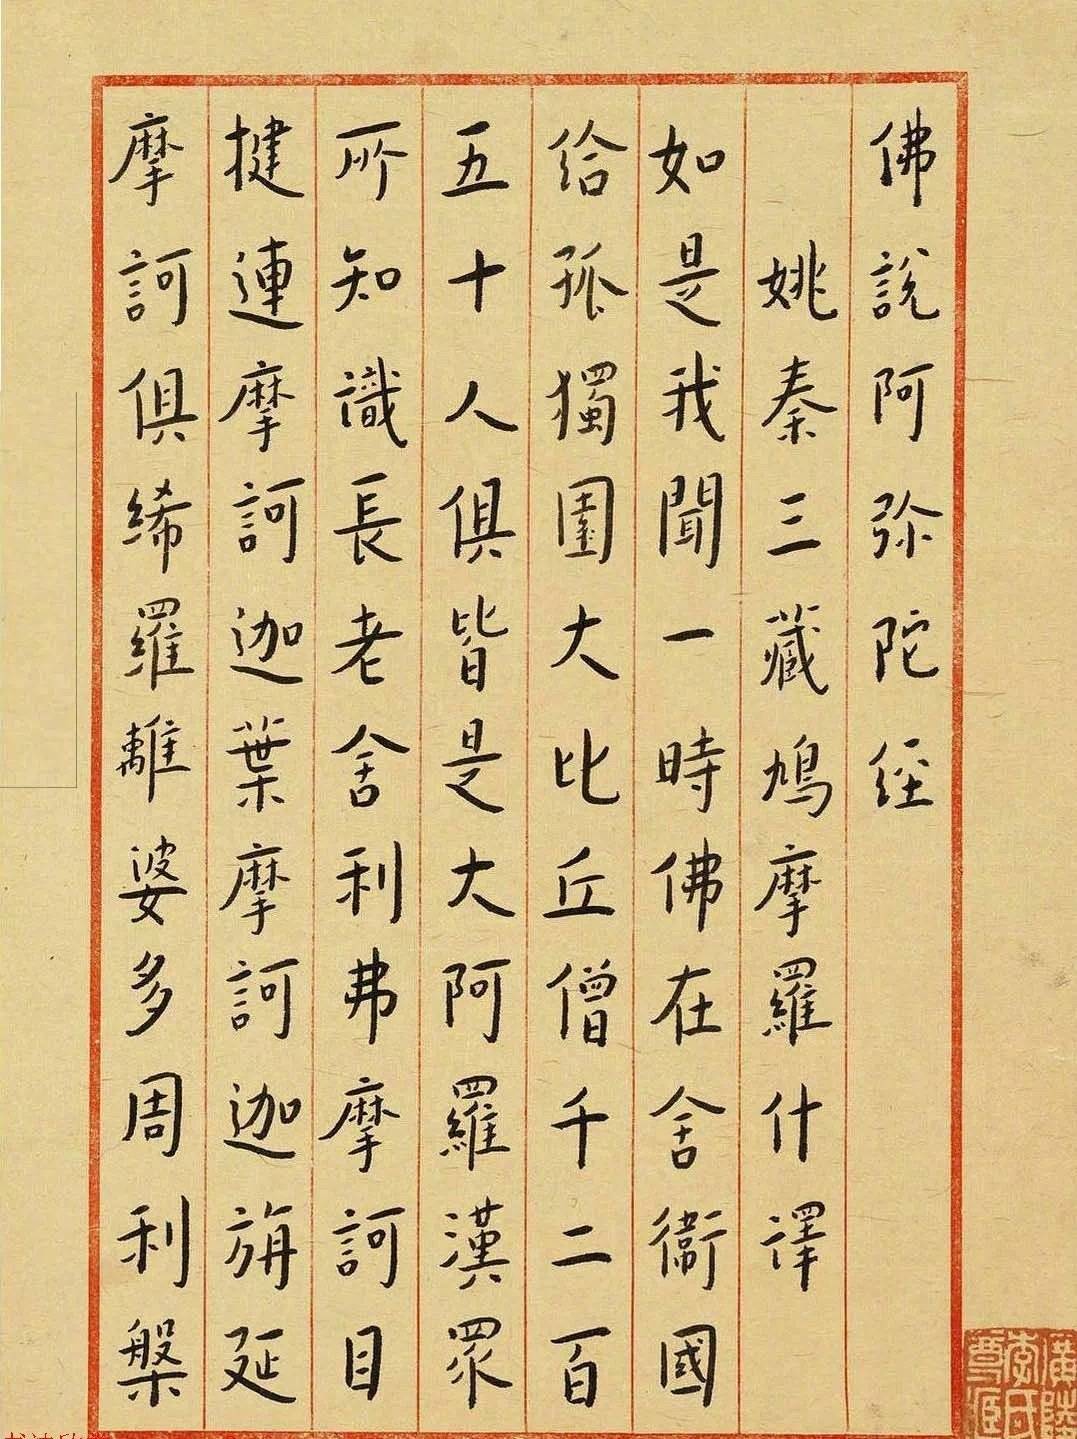 佛說阿弥陀經
姚秦三藏鳩摩羅什譯
如是我聞一時佛在舍衞國
給孤獨園大比丘僧千二百
五十人俱皆是大阿羅漢眾
所知識長老舍利弗摩訶目
揵連摩訶迦葉摩訶迦旃延
摩訶俱絺羅離婆多周利槃